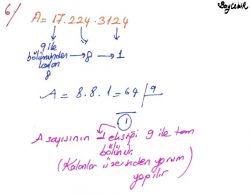 6/
A=17.224.3124
9 ile
bölümünden → 8 → 1
kalan
8
A = 8.8.1 = 64 | 9
1
A sayısının 1 eksiği 9 ile tam
bölünür
(Kalanlar üzerinden yorum
yapılır